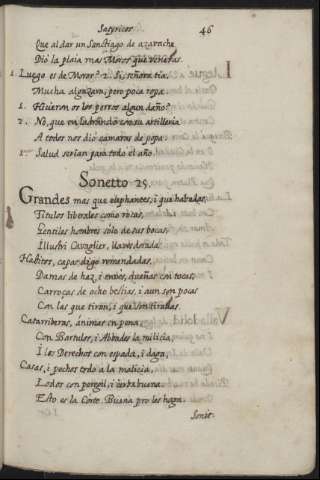 Satyricos 46
Que al dar un Sanctiago de azavache
Dio la playa mas Moros que veneras.
1. Luego es de Moros? 2. Si, señora tia.
Mucha algazara, pero poca ropa.
1. Hicieron os los perros algun daño?
2. No, que en ladrando con su artilleria
A todos nos dio camaras de popa.
1. Salud serian para todo el año.
Sonetto 25
Grandes mas que elephantes, i que habadas,
Titulos liberales como rocas,
Gentiles hombres solo de sus bocas,
Illustri Cavaglier, llaves doradas
Habitos, capas digo remendadas,
Damas de haz, i envés, dueñas con tocas,
Carroças de ocho bestias, i aun son pocas
Con las que tiran, i que son tiradas.
Catarriberas, ánimas en pena,
Con Bartulos, i Abbades la milicia,
I los Derechos con espada, i daga,
Casas, i pechos todo a la malicia,
Lodos con peregil, i ierbabuena
Esto es la Corte. Buena pro les haga.
Sonet.